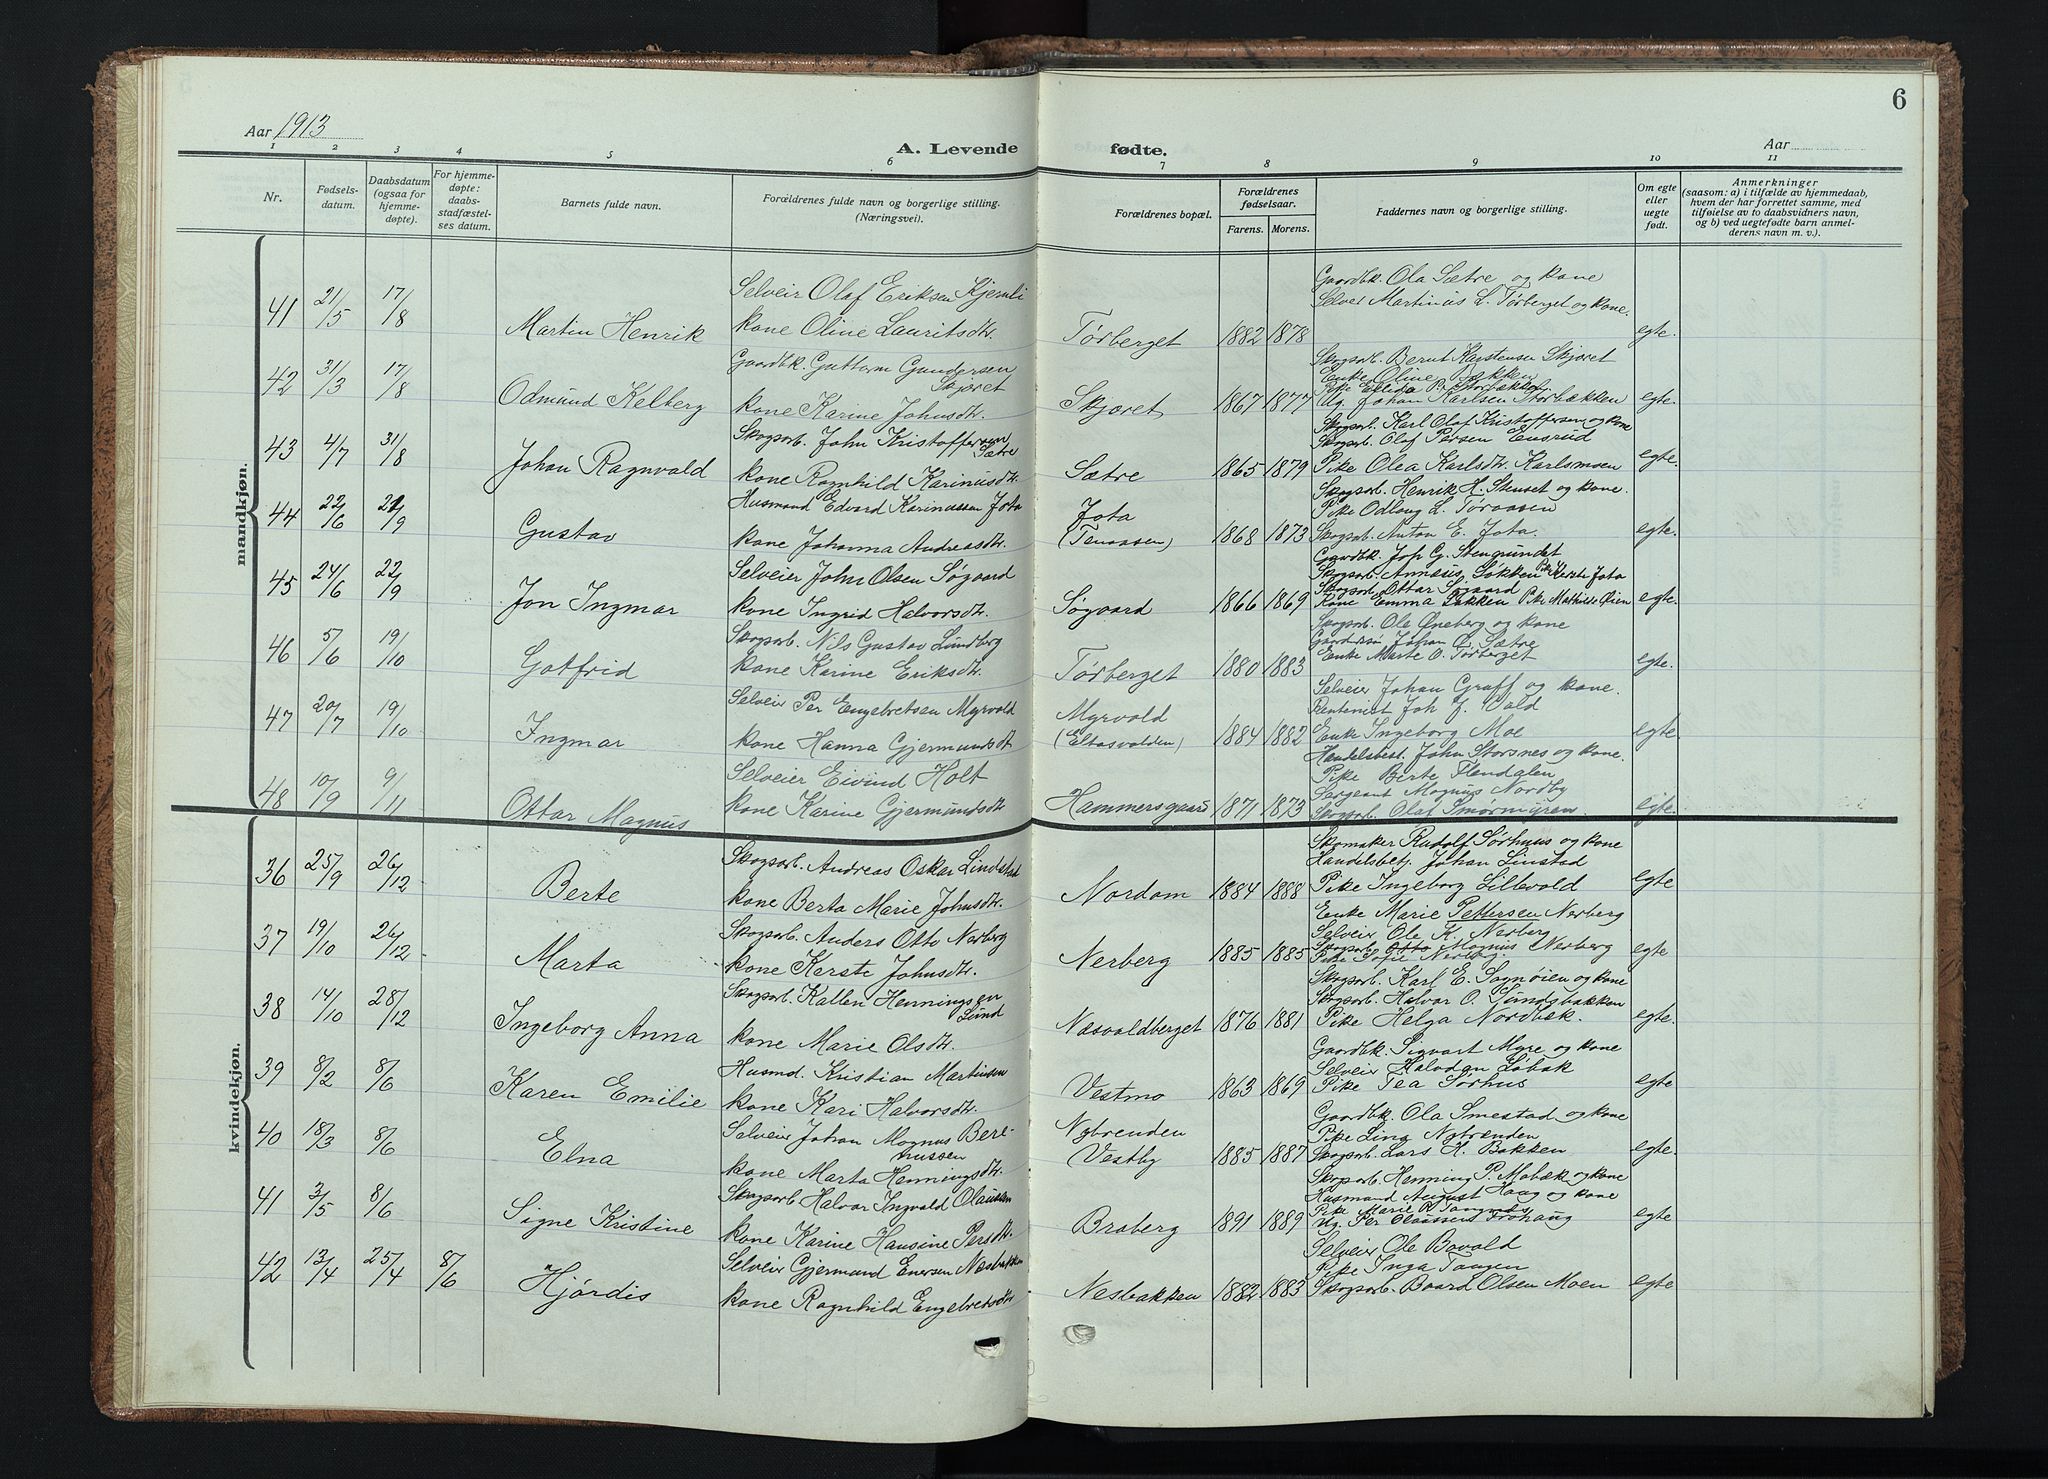 6
Aar 1913
Aar
A. Levende fødte.
1 2 3 4 5 6 7 8 9 10 11
Nr.
Fødsels-
datum.
Daabsdatum
(ogsaa for
hjemme-
døpte).
For hjemme-
døpte:
daabs-
stadfæstel-
ses datum.
Barnets fulde navn.
Forældrenes fulde navn og borgerlige stilling.
(Næringsvei).
Forældrenes bopæl.
Forældrenes
fødselsaar.
Farens. Morens.
Faddernes navn og borgerlige stilling.
Om egte
eller
uegte
født.
Anmerkninger
(saasom: a) i tilfælde av hjemmedaab,
hvem der har forrettet samme, med
tilføielse av to daabsvidners navn,
og b) ved uegtefødte barn anmel-
derens navn m. v.).
mandkjøn.
41 21/5 17/8 Martin Henrik
Selveir Olaf Eriksen Kjernli
kone Oline Lauritsdtr.
Tørberget 1882 1878
Gaardbk. Ola Sætre og kone
Selveir Martinus L. Tørberget og kone.
egte.
42 31/3 17/8 Odmund Kelberg
Gaardbk. Guttorm Gundersen
Skjæret
kone Karine Johnsdtr.
Skjæret 1867 1877
Skogsarb. Bernt Karstensen Skjæret
Enke Oline Bækken
Pike Elida P. Storbækken
Ug. Johan Karlsen Storbækken
egte.
43 4/7 31/8 Johan Ragnvald
Skogsarb. John Kristoffersen
Sætre
kone Ragnhild Karinusdtr.
Sætre 1865 1879
Skogsarb. Karl Olaf Kristoffersen og kone
Skogsarb. Olaf Persen Ensrud
Pike Olea Karlsdtr. Karlsmoen
egte.
44 22/6 21/9 Gustav
Husmand Edvard Karinussen Jota
kone Johanna Andreasdtr.
Jota
1868 1873
Skogsarb. Henrik H. Stenset og kone.
Pike Odlaug L. Tøraasen
Skogsarb. Anton E. Jota.
egte.
45 24/6 22/9 Jon Ingmar
Selveier John Olsen Søgaard
kone Ingrid Halvorsdtr.
Søgaard 1866 1869
Gaardbk. Joh. G. Stengrundet
Skogsarb. Annæus Løkken Pike Kerste Jota
Skogsarb. Ottar Søgaard
Kone Emma Løkken Pike Mathilde Øien
egte.
46 5/6 19/10 Gotfrid
Skogsarb. Nils Gustav Lundberg
kone Karine Eriksdtr.
Tørberget 1880 1883
Skogsarb. Ole Øneberg og kone
Gaardbr.søn Johan O. Sætre
Enke Marte O. Tørberget
egte.
47 20/7 19/10 Ingmar
Selveir Per Engebretsen Myrvold
kone Hanna Gjermundsdt.
Myrvold
(Eltasvolden) 1884 1882
Selveir Johan Graff og kone.
Rentenist Joh. J. Vold
Enke Ingeborg Moe
egte.
48 10/9 9/11 Ottar Magnus
Selveier Eivind Holt
kone Karine Gjermundsdtr
Hammersgaard 1871 1873
Handelsbest. John Storsnes og kone.
Pike Berte Flendalen
Sergeant Magnus Nordby
Skogsarb. Olaf Smørmyren.
egte.
kvindekjøn.
36 25/9 26/12 Berte
Skogsarb. Andreas Oskar Lindstad
kone Berta Marie Johnsdtr.
Nordom 1884 1888
Skomaker Rudolf Sørhuus og kone
Handelsbetj. Johan Linstad
Pike Ingeborg Lillevold
egte
37 19/10 26/12 Marta
Skogsarb. Anders Otto Nerberg
kone Kerste Johnsdtr.
Nerberg 1885 1885
Enke Marie Pettersen Nerberg
Selveir Ole K. Nerberg
Skogsarb. Otto Magnus Nerberg
Pike Sofie Nerberg.
egte
38 14/10 28/12 Ingeborg Anna
Skogsarb. Kallen Henningsen
Lund
kone Marie Olsdtr.
Næsvoldberget 1876 1881
Skogsarb. Karl E. Sagmoien og kone
Skogsarb. Halvar O. Sundsbakken
Pike Helga Nordbæk.
egte.
39 8/2 8/6 Karen Emilie
Husmd. Kristian Martinsen
kone Kari Halvorsdtr.
Vestmo 1863 1869
Gaardbk. Sigvart Myre og kone
Selveir Halvdan Løbak
Pike Tea Sørhus
egte
40 18/3 8/6 Elna
Selveir Johan Magnus Bern-
hussen
kone Marta Henningsdtr.
Nybrenden
Vestby 1885 1887
Gaardbk. Ola Smestad og kone
Pike Lina Nybrenden
Skogsarb. Lars H. Bakken
egte.
41 3/5 8/6 Signe Kristine
Skogsarb. Halvar Ingvald Olaussen
kone Karine Hansine Persdtr.
Braberg 1891 1889
Skogsarb. Henning P. Mobæk og kone
Husmand August Haag og kone
Ug. Per Olaussen Frohaug
egte
42 13/4 25/4 8/6 Hjørdis
Selveir Gjermund Enersen Næsbakken
kone Ragnhild Engebretsdtr
Nesbakken 1882 1883
Selveir Ole Bovold
Pike Inga Tangen
Skogsarb. Baard Olsen Moen
egte